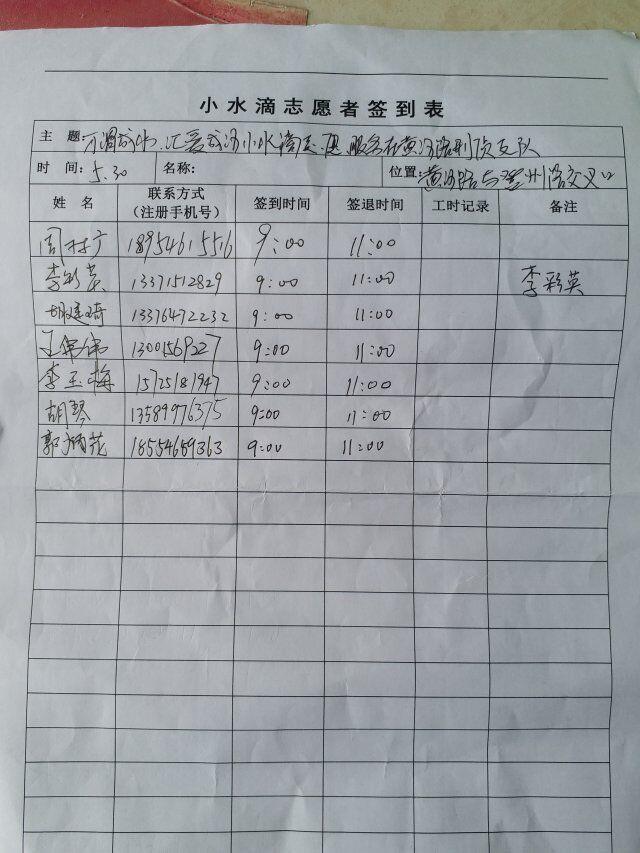 小水滴志愿者签到表
主 题: 小水滴志愿服务在黄河路刑侦支队
时 间: 5.30 名称: 位置: 黄河路与登州路交叉口
姓 名 联系方式（注册手机号） 签到时间 签退时间 工时记录 备注
周村广 18954615516 9:00 11:00
李彩英 13371512829 9:00 11:00 李彩英
胡建琦 13376472232 9:00 11:00
王伟伟 13001569227 9:00 11:00
李玉梅 15725181947 9:00 11:00
胡琴 13589976375 9:00 11:00
郭炳花 18554659363 9:00 11:00